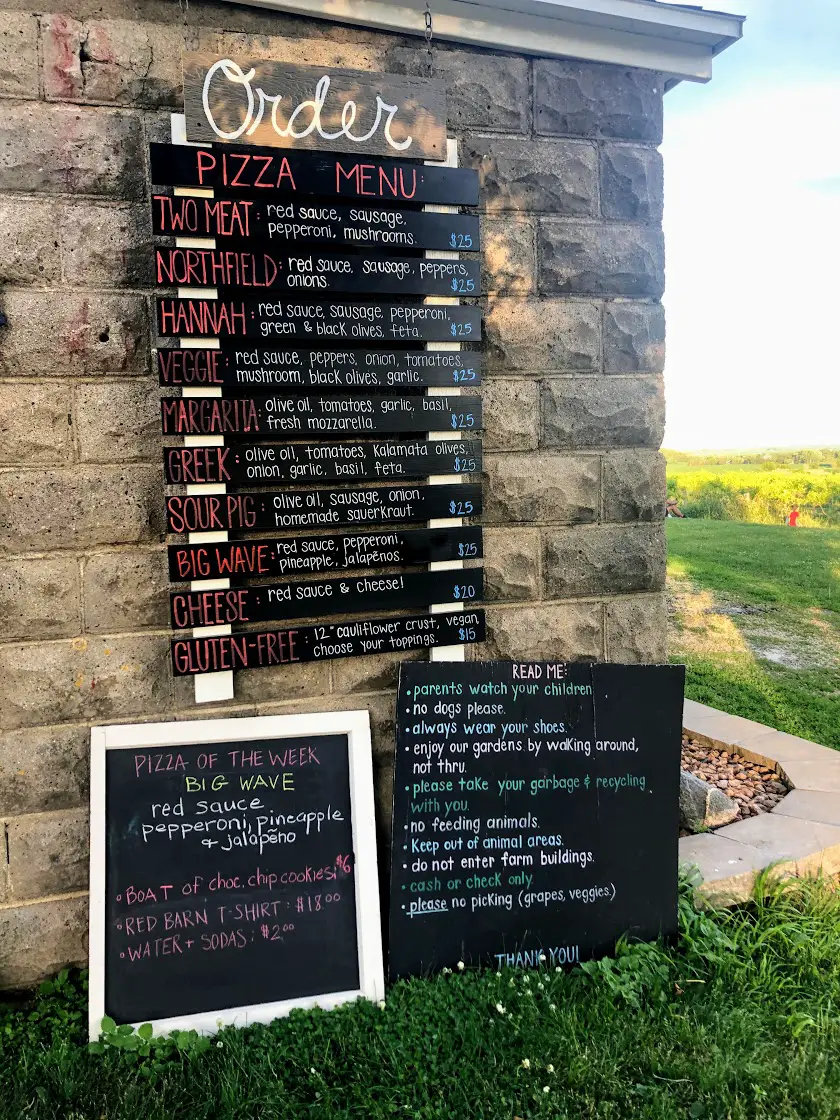 Order
PIZZA MENU:
TWO MEAT: red sauce, sausage,
pepperoni, mushrooms. $25
NORTHFIELD: red sauce, sausage, peppers,
onions. $25
HANNAH: red sauce, sausage, pepperoni,
green & black olives, feta. $25
VEGGIE: red sauce, peppers, onion, tomatoes,
mushroom, black olives, garlic. $25
MARGARITA: olive oil, tomatoes, garlic, basil,
fresh mozzarella. $25
GREEK: olive oil, tomatoes, Kalamata olives,
onion, garlic, basil, feta. $25
SOUR PIG: olive oil, sausage, onion,
homemade squerkraut. $25
BIG WAVE: red sauce, pepperoni,
pineapple, jalapeños. $25
CHEESE: red sauce & cheese! $20
GLUTEN-FREE: 12" cauliflower crust, vegan
choose your toppings. $15
PIZZA OF THE WEEK
BIG WAVE
red sauce
pepperoni, pineapple
& jalapẽno
• BOAT OF choc. chip cookies: $6
• RED BARN T-SHIRT: $18.00
• WATER + SODAS: $2.00
READ ME:
• parents watch your children
• no dogs please.
• always wear your shoes.
• enjoy our gardens by walking around,
not thru.
• please take your garbage & recycling
with you.
• no feeding animals.
• Keep out of animal areas.
• do not enter farm buildings.
• cash or check only
• please no picking (grapes, veggies.)
THANK YOU!